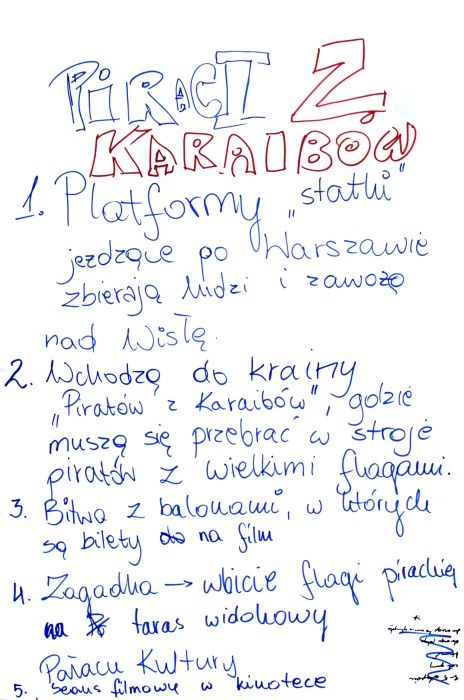 PIRACI Z
KARAIBÓW
1. Platformy „statki"
jeżdżące po Warszawie
zbierają ludzi i zawożą
nad Wisłę.
2. Wchodzą do krainy
„Piratów z Karaibów", gdzie
muszą się przebrać w stroje
piratów z wielkimi flagami.
3. Bitwa z balonami, w których
są bilety do na film
4. Zagadka → wbicie flagi pirackiej
na taras widokowy
Pałacu Kultury
5. seans filmowy w kinotece